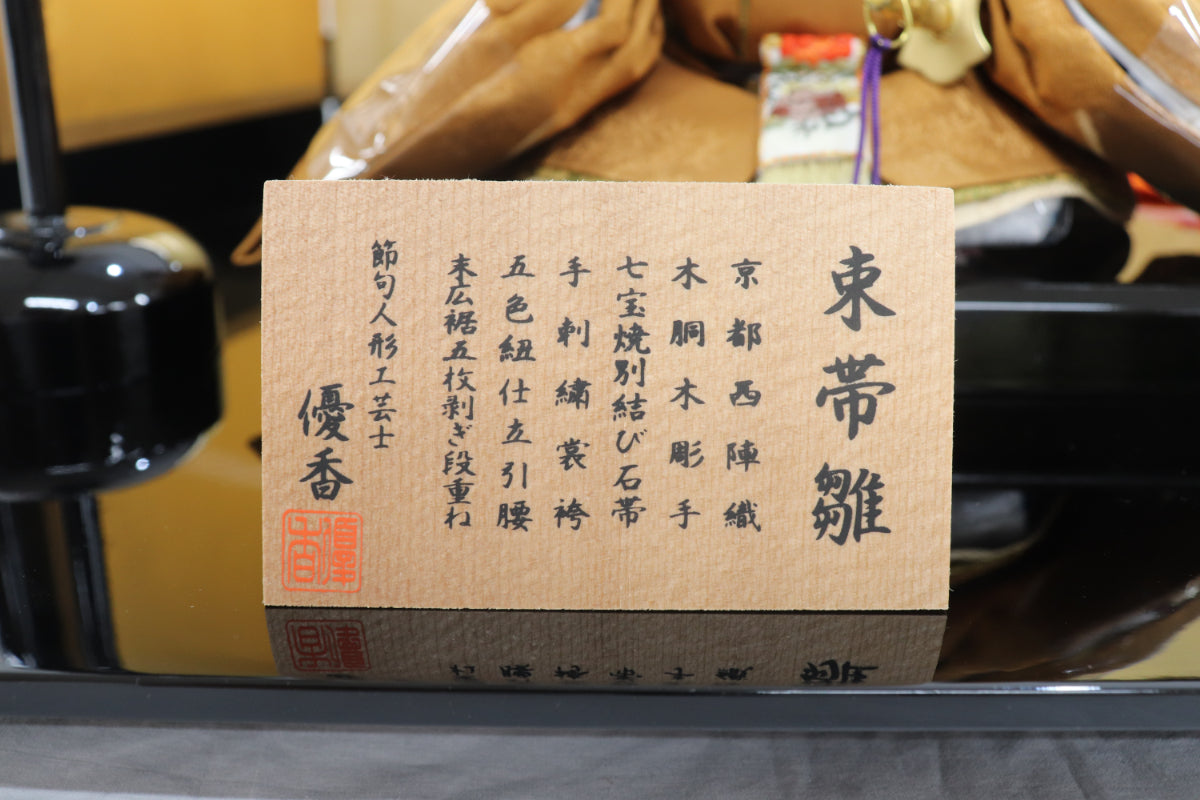 束帯雛
京都西陣織
木胴木彫手
七宝焼別結び石帯
手刺繍裳袴
五色紐仕立引腰
末広裾五枚剥ぎ段重ね
節句人形工芸士
優香